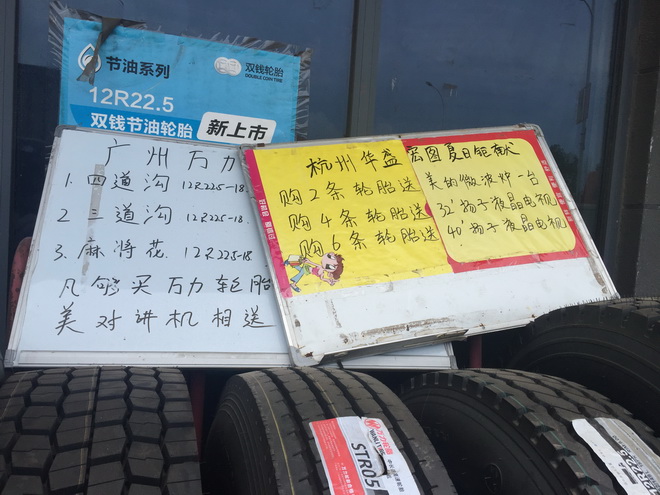 节油系列
双钱轮胎
DOUBLE COIN TIRE
12R22.5
双钱节油轮胎
新上市
广州万力
1. 四道沟 12R225-18.
2 三道沟 12R225-18.
3. 麻将花. 12R225-18
凡够买万力轮胎
美对讲机相送
杭州华益宏图夏日钜献
购2条轮胎送美的微波炉一台
购4条轮胎送32'扬子液晶电视
购6条轮胎送40'扬子液晶电视
STR05